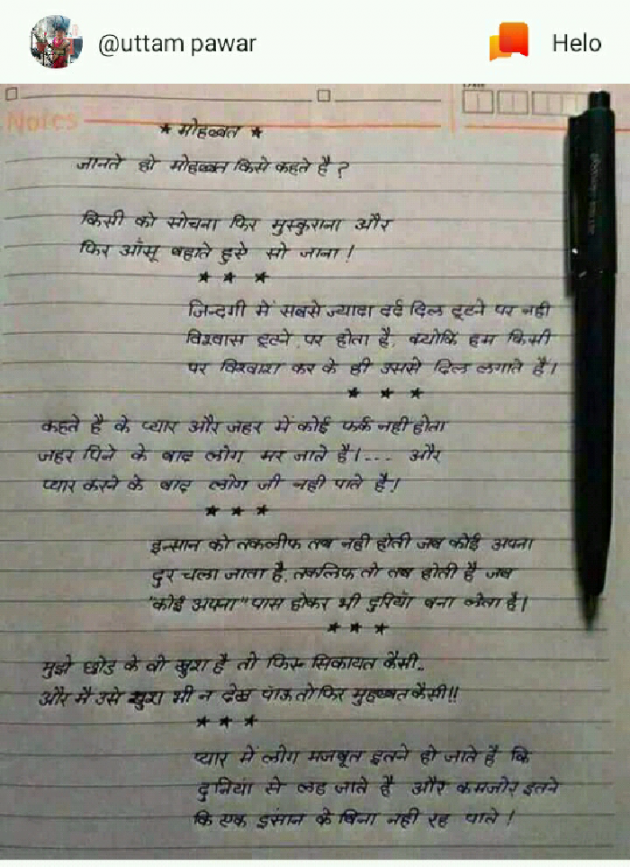 @uttam pawar
Helo
Notes
★ मोहब्बत ★
जानते हो मोहब्बत किसे कहते है ?
किसी को सोचना फिर मुस्कुराना और
फिर आँसू बहाते हुऐ सो जाना !
★ ★ ★
जिन्दगी में सबसे ज्यादा दर्द दिल टूटने पर नही
विश्वास टूटने पर होता है, क्योकि हम किसी
पर विश्वास कर के ही उससे दिल लगाते है।
★ ★ ★
कहते है के प्यार और जहर में कोई फर्क नही होता
जहर पिने के बाद लोग मर जाते है।... और
प्यार करने के बाद लोग जी नही पाते है!
★ ★ ★
इन्सान को तकलीफ तब नही होती जब कोई अपना
दुर चला जाता है, तकलिफ तो तब होती है जब
"कोई अपना" पास होकर भी दुरियाँ बना लेता है।
★ ★ ★
मुझे छोड के वो खुश है तो फिर सिकायत कैसी..
और मै उसे खुश भी न देख पाऊ तो फिर मुहब्बत कैसी!!
★ ★ ★
प्यार में लोग मजबूत इतने हो जाते है कि
दुनिया से लड जाते है और कमजोर इतने
कि एक इंसान के बिना नही रह पाते !